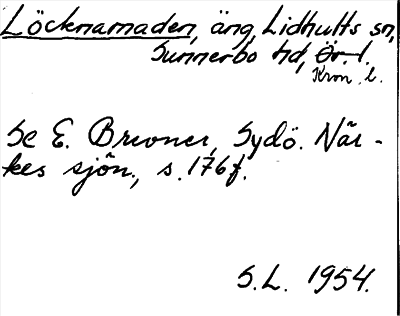 Löcknamaden, äng, Lidhults sn,
Sunnerbo hd, Ör. l.
Kron. l.
Se E. Brevner, Sydö. När-
kes sjön., s. 176 f.
S.L. 1954.